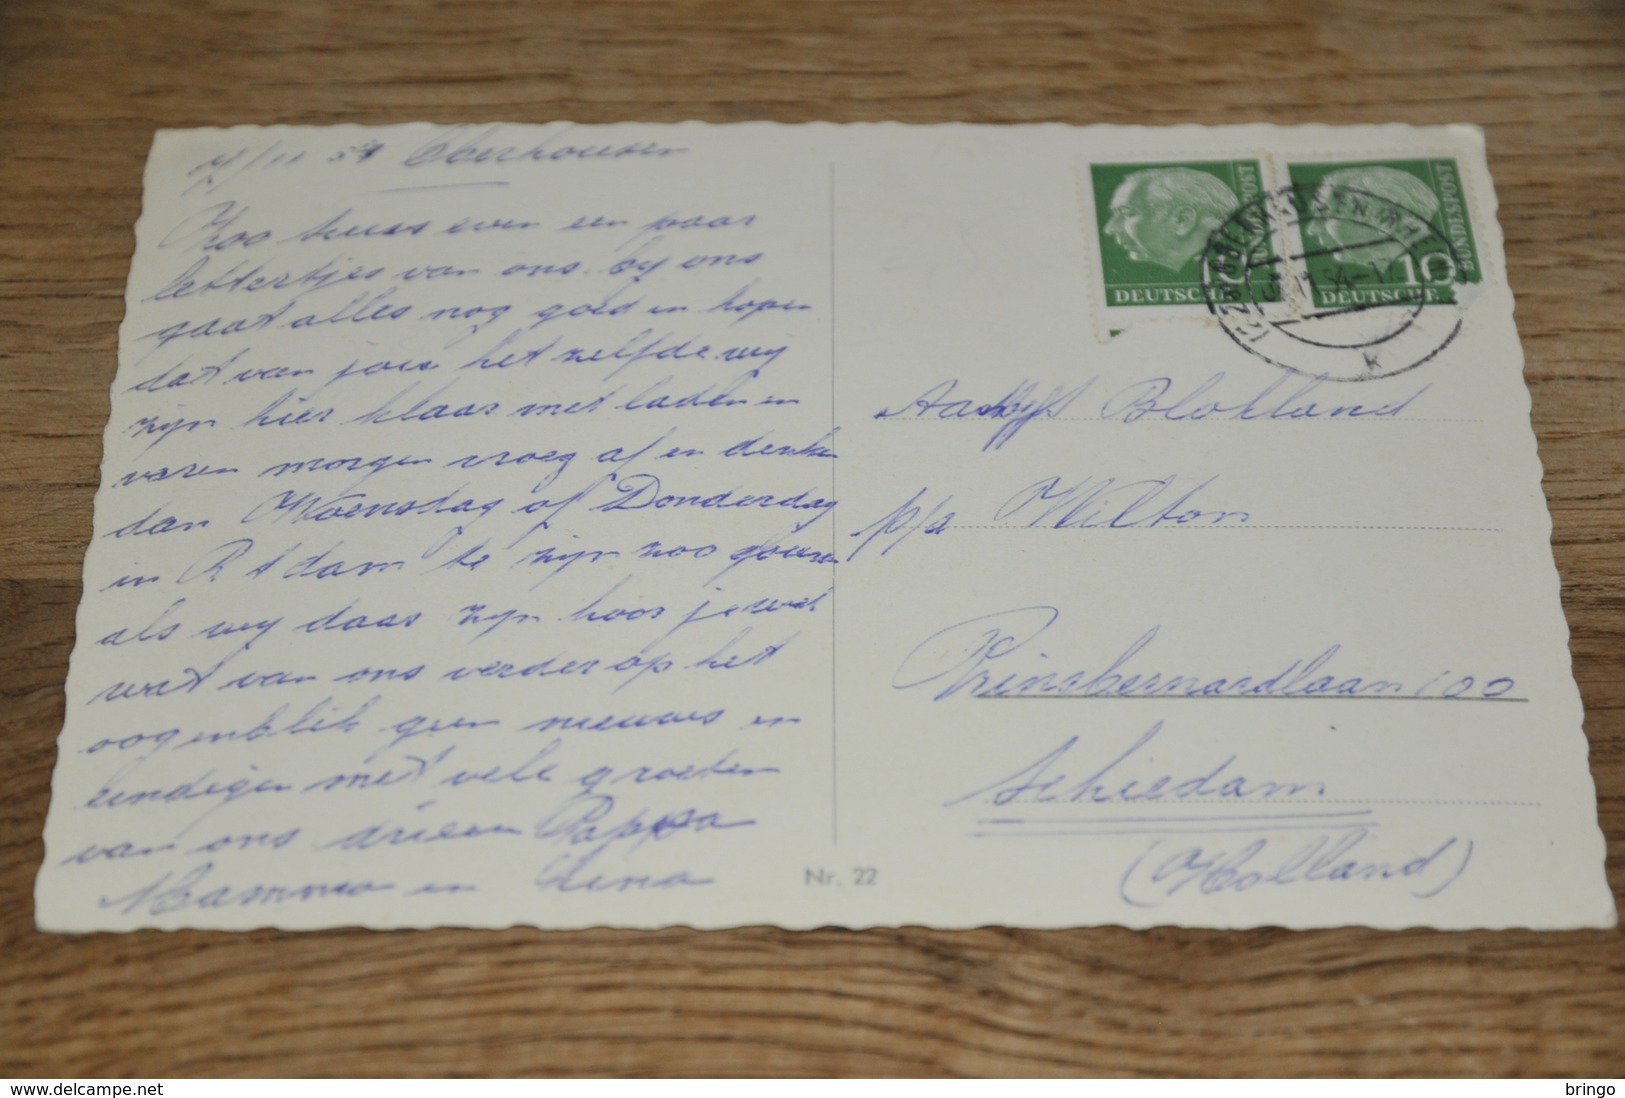 /11 54 Oberhousen
Zoo truus even een paar
lettertjes van ons. by ons
gaat alles nog goed en hopen
dat van jou het zelfde wij
zijn hier klaar met laden en
varen morgen vroeg af en denken
dan Woensdag of Donderdag
in R t dam te zijn zoo gauw
als wy daar zijn hoor je wel
wat van ons verder op het
oogenblik geen nieuws en
eindigen met vele groeten
van ons drieen Pappa
Mamma en
Nr. 22
DEUTSCHE BUNDESPOST
10 DEUTSCHE BUNDESPOST
54-17
k
Blokland
p/a Wilton
Prinsbernardlaan 100
Schiedam
(Holland)
© delcampe.net
bringo